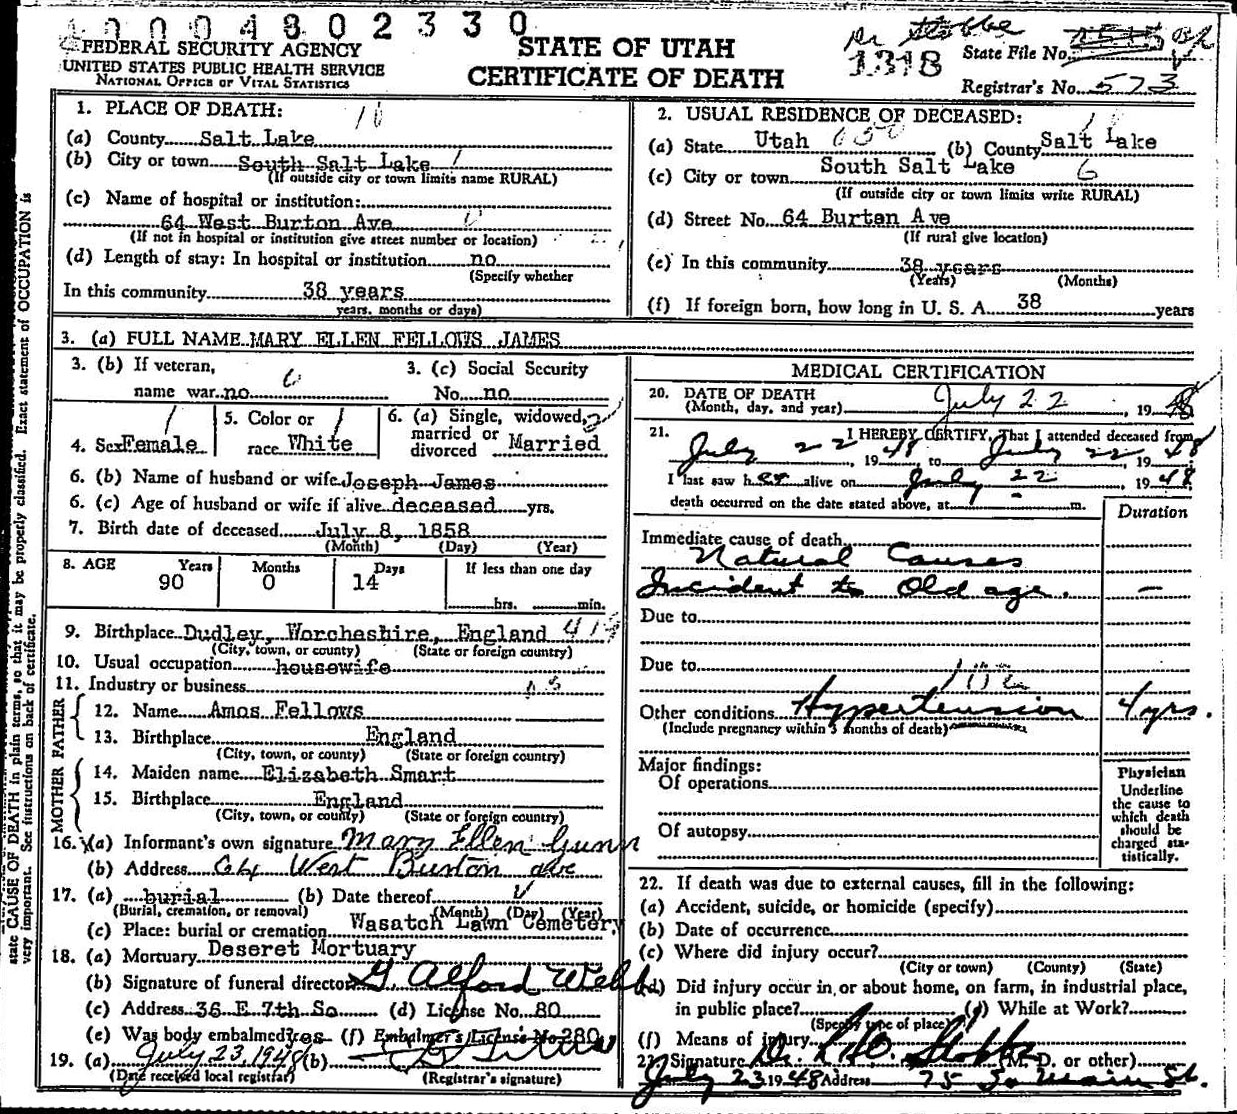 1000480 2330
FEDERAL SECURITY AGENCY
UNITED STATES PUBLIC HEALTH SERVICE
NATIONAL OFFICE OF VITAL STATISTICS
STATE OF UTAH
CERTIFICATE OF DEATH
Dr Stobbe
1318
State File No.
Registrar's No. 573
1. PLACE OF DEATH:
(a) County Salt Lake
(b) City or town South Salt Lake
(If outside city or town limits name RURAL)
(c) Name of hospital or institution:
64 West Burton Ave
(If not in hospital or institution give street number or location)
(d) Length of stay: In hospital or institution no
(Specify whether
In this community 38 years
years, months or days)
2. USUAL RESIDENCE OF DECEASED:
(a) State Utah (b) County Salt Lake
(c) City or town South Salt Lake
(If outside city or town limits write RURAL)
(d) Street No. 64 Burton Ave
(If rural give location)
(e) In this community 38 years
(Years) (Months)
(f) If foreign born, how long in U. S. A. 38 years
3. (a) FULL NAME MARY ELLEN FELLOWS JAMES
3. (b) If veteran,
name war no
3. (c) Social Security
No. no
4. Sex Female
5. Color or
race White
6. (a) Single, widowed,
married or
divorced Married
6. (b) Name of husband or wife Joseph James
6. (c) Age of husband or wife if alive deceased yrs.
7. Birth date of deceased July 8, 1858
(Month) (Day) (Year)
8. AGE Years Months Days If less than one day
90 0 14 hrs. min.
9. Birthplace Dudley, Worcheshire, England
(City, town, or county) (State or foreign country)
10. Usual occupation housewife
11. Industry or business
FATHER
12. Name Amos Fellows
13. Birthplace England
(City, town, or county) (State or foreign country)
MOTHER
14. Maiden name Elizabeth Smart
15. Birthplace England
(City, town, or county) (State or foreign country)
16. (a) Informant's own signature Mary Ellen Gunn
(b) Address 64 West Burton ave
17. (a) burial (b) Date thereof
(Burial, cremation, or removal) (Month) (Day) (Year)
(c) Place: burial or cremation Wasatch Lawn Cemetery
18. (a) Mortuary Deseret Mortuary
(b) Signature of funeral director G. Alford Webb
(c) Address 36 E 7th So (d) License No. 80
(e) Was body embalmed yes (f) Embalmer's License No 280
19. (a) July 23, 1948 (b)
(Date received local registrar) (Registrar's signature)
MEDICAL CERTIFICATION
20. DATE OF DEATH
(Month, day, and year) July 22, 1948
21. I HEREBY CERTIFY, That I attended deceased from
July 22, 1948 to July 22, 1948
I last saw her alive on July 22, 1948
death occurred on the date stated above, at m.
Duration
Immediate cause of death
Natural Causes
Incident to Old age. —
Due to
Due to
Other conditions Hypertension 4 yrs.
(Include pregnancy within 3 months of death)
Major findings:
Of operations
Of autopsy
Physician
Underline
the cause to
which death
should be
charged sta-
tistically.
22. If death was due to external causes, fill in the following:
(a) Accident, suicide, or homicide (specify)
(b) Date of occurrence
(c) Where did injury occur?
(City or town) (County) (State)
(d) Did injury occur in or about home, on farm, in industrial place,
in public place? (e) While at Work?
(Specify type of place)
(f) Means of injury
23. Signature Dr. Stobbe (M. D. or other)
July 23 1948 Address 75 So Main St.
state CAUSE OF DEATH in plain terms, so that it may be properly classified. Exact statement of OCCUPATION is
very important. See instructions on back of certificate.